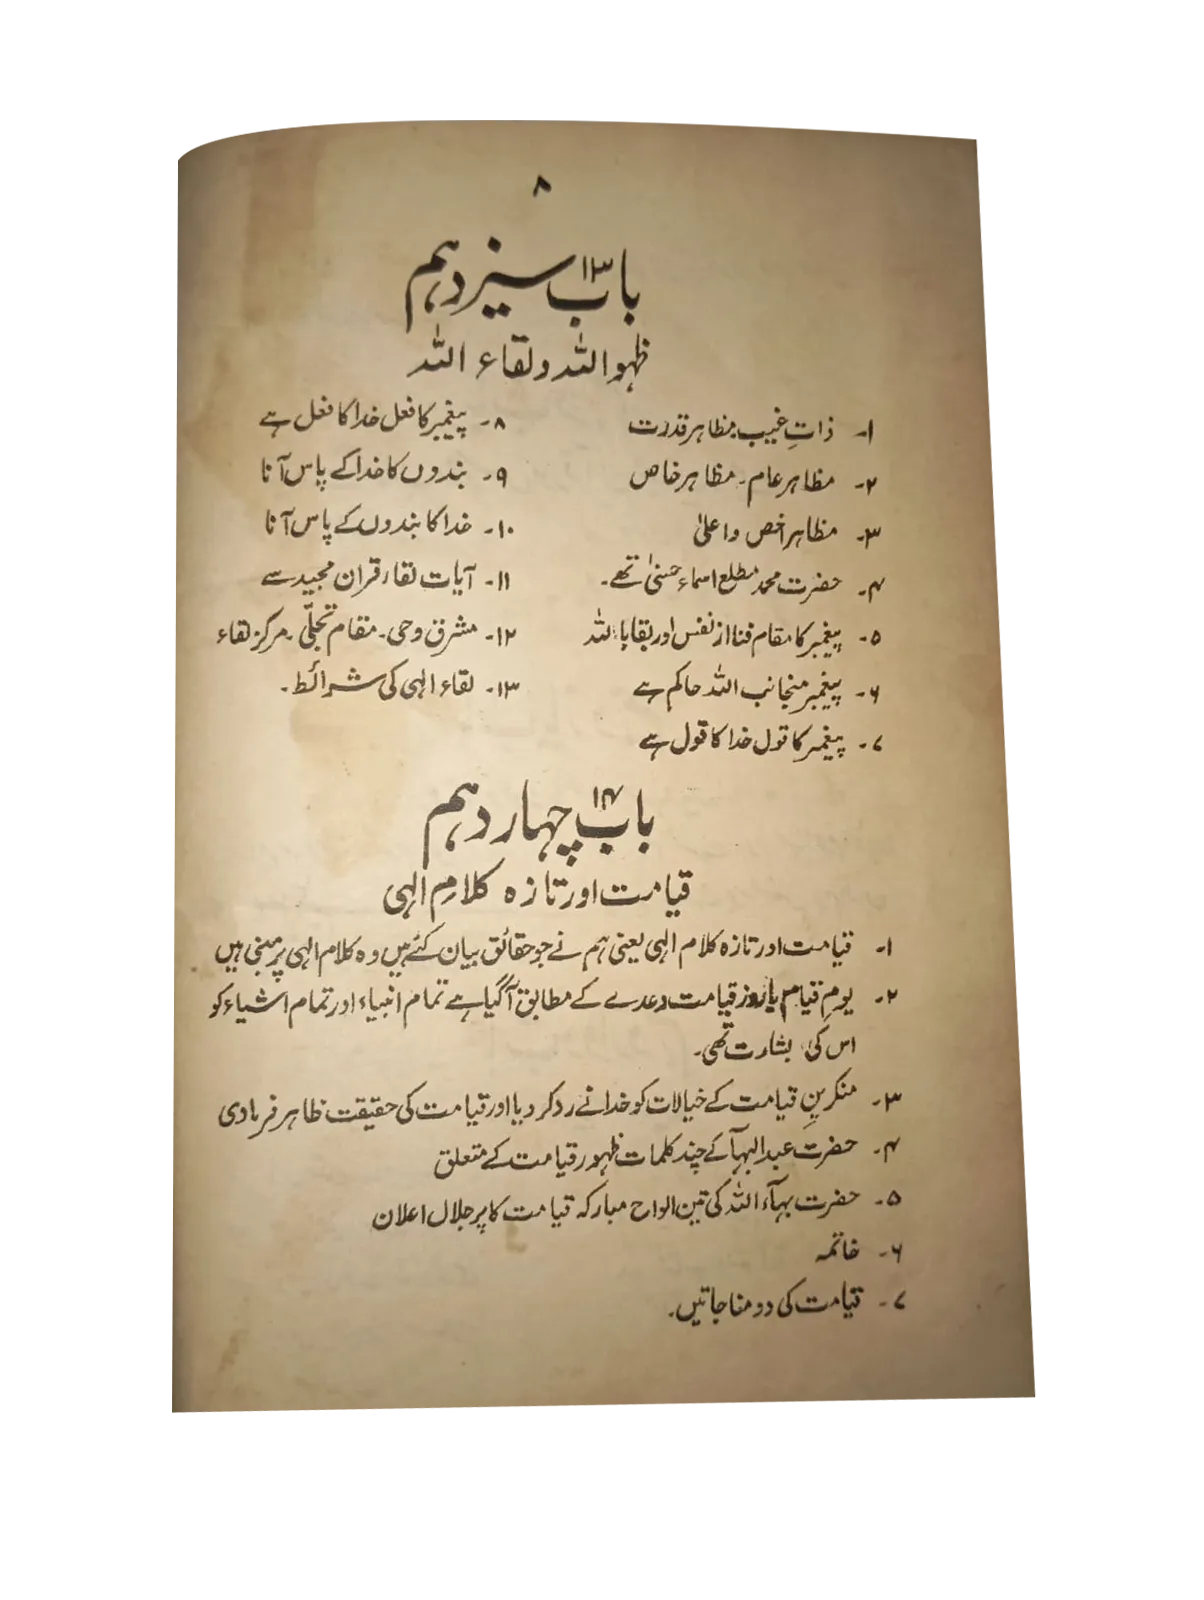 ۸
باب ۱۳ سیزدہم
ظہور اللہ و لقاء اللہ
۱- ذاتِ غیب۔ مظاہر قدرت
۲- مظاہر عام۔ مظاہر خاص
۳- مظاہر اخص و اعلیٰ
۴- حضرت محمد مطلع اسماء حسنیٰ تھے۔
۵- پیغمبر کا مقام فنا از نفس اور بقا باللہ
۶- پیغمبر منجانب اللہ حاکم ہے
۷- پیغمبر کا قول خدا کا قول ہے
۸- پیغمبر کا فعل خدا کا فعل ہے
۹- بندوں کا خدا کے پاس آنا
۱۰- خدا کا بندوں کے پاس آنا
۱۱- آیات لقاء قران مجید سے
۱۲- مشرق وحی۔ مقام تجلّی۔ مرکز لقاء
۱۳- لقاء الہی کی شرائط۔
باب ۱۴ چہاردہم
قیامت اور تازہ کلامِ الہی
۱- قیامت اور تازہ کلام الہی یعنی ہم نے جو حقائق بیان کئے ہیں وہ کلام الہی پر مبنی ہیں
۲- یومِ قیام یا روز قیامت وعدے کے مطابق آگیا ہے تمام انبیاء اور تمام اشیاء کو
اس کی بشارت تھی۔
۳- منکرینِ قیامت کے خیالات کو خدا نے رد کر دیا اور قیامت کی حقیقت ظاہر فرما دی
۴- حضرت عبدالبہآ کے چند کلمات ظہور قیامت کے متعلق
۵- حضرت بہآء اللہ کی تین الواح مبارکہ قیامت کا پرجلال اعلان
۶- خاتمہ
۷- قیامت کی دو مناجاتیں۔